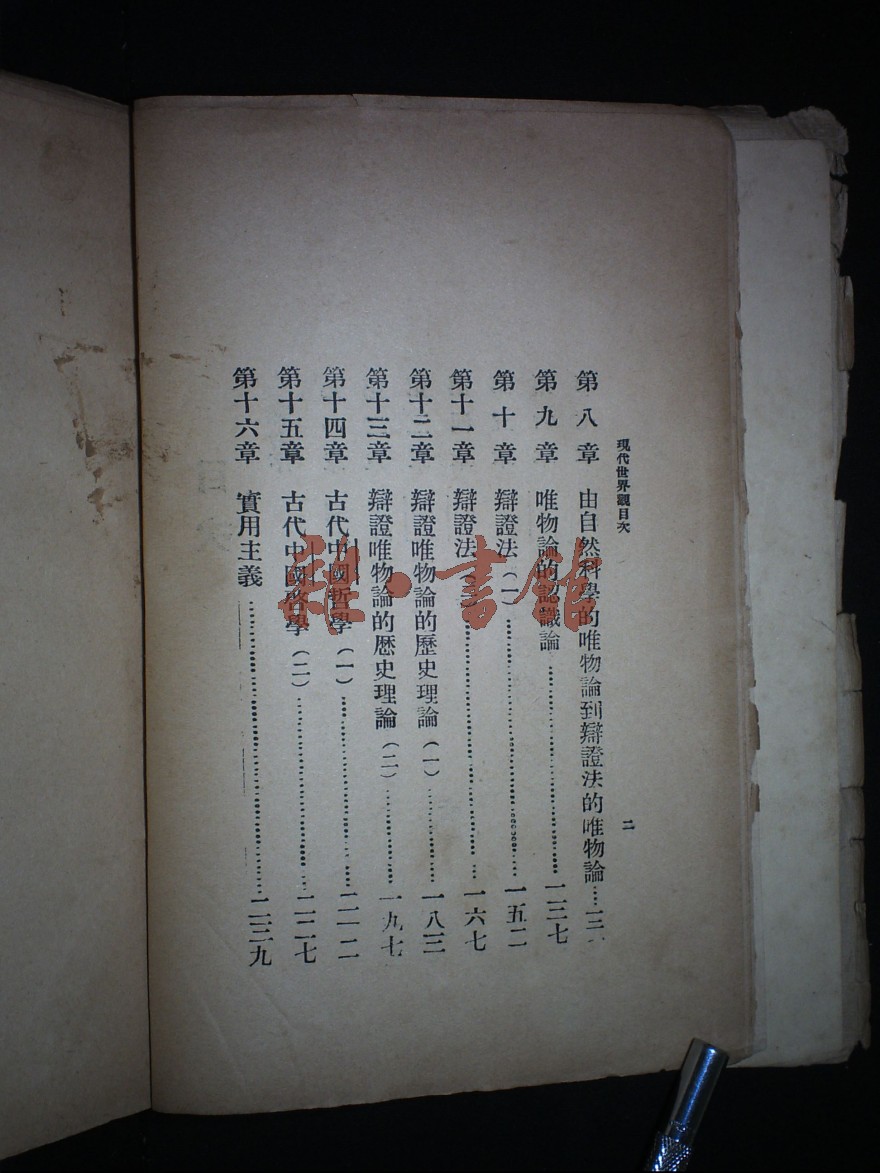 現代世界觀目次
二
第八章 由自然科學的唯物論到辯證法的唯物論……一三
第九章 唯物論的認識論……一三七
第十章 辯證法（一）……一五二
第十一章 辯證法（二）……一六七
第十二章 辯證唯物論的歷史理論（一）……一八三
第十三章 辯證唯物論的歷史理論（二）……一九七
第十四章 古代中國哲學（一）……二一二
第十五章 古代中國哲學（二）……二二七
第十六章 實用主義……二三九
書館